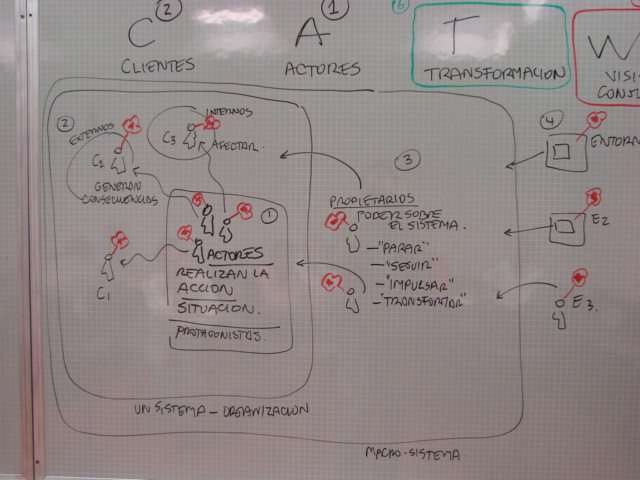 2
1
6
C
A
T
W
CLIENTES
ACTORES
TRANSFORMACION
VISI
2
EXTERNOS
INTERNOS
C2
C3
AFECTAR.
GENERAN
CONSECUENCIAS
C1
1
ACTORES
REALIZAN LA
ACCION
SITUACION.
PROTAGONISTAS.
3
PROPIETARIOS
PODER SOBRE
EL SISTEMA.
-"PARAR"
-"SEGUIR"
-"IMPULSAR"
-"TRANSFORMAR"
4
ENTORN
E2
E3.
UN SISTEMA - ORGANIZACION
MACRO-SISTEMA.